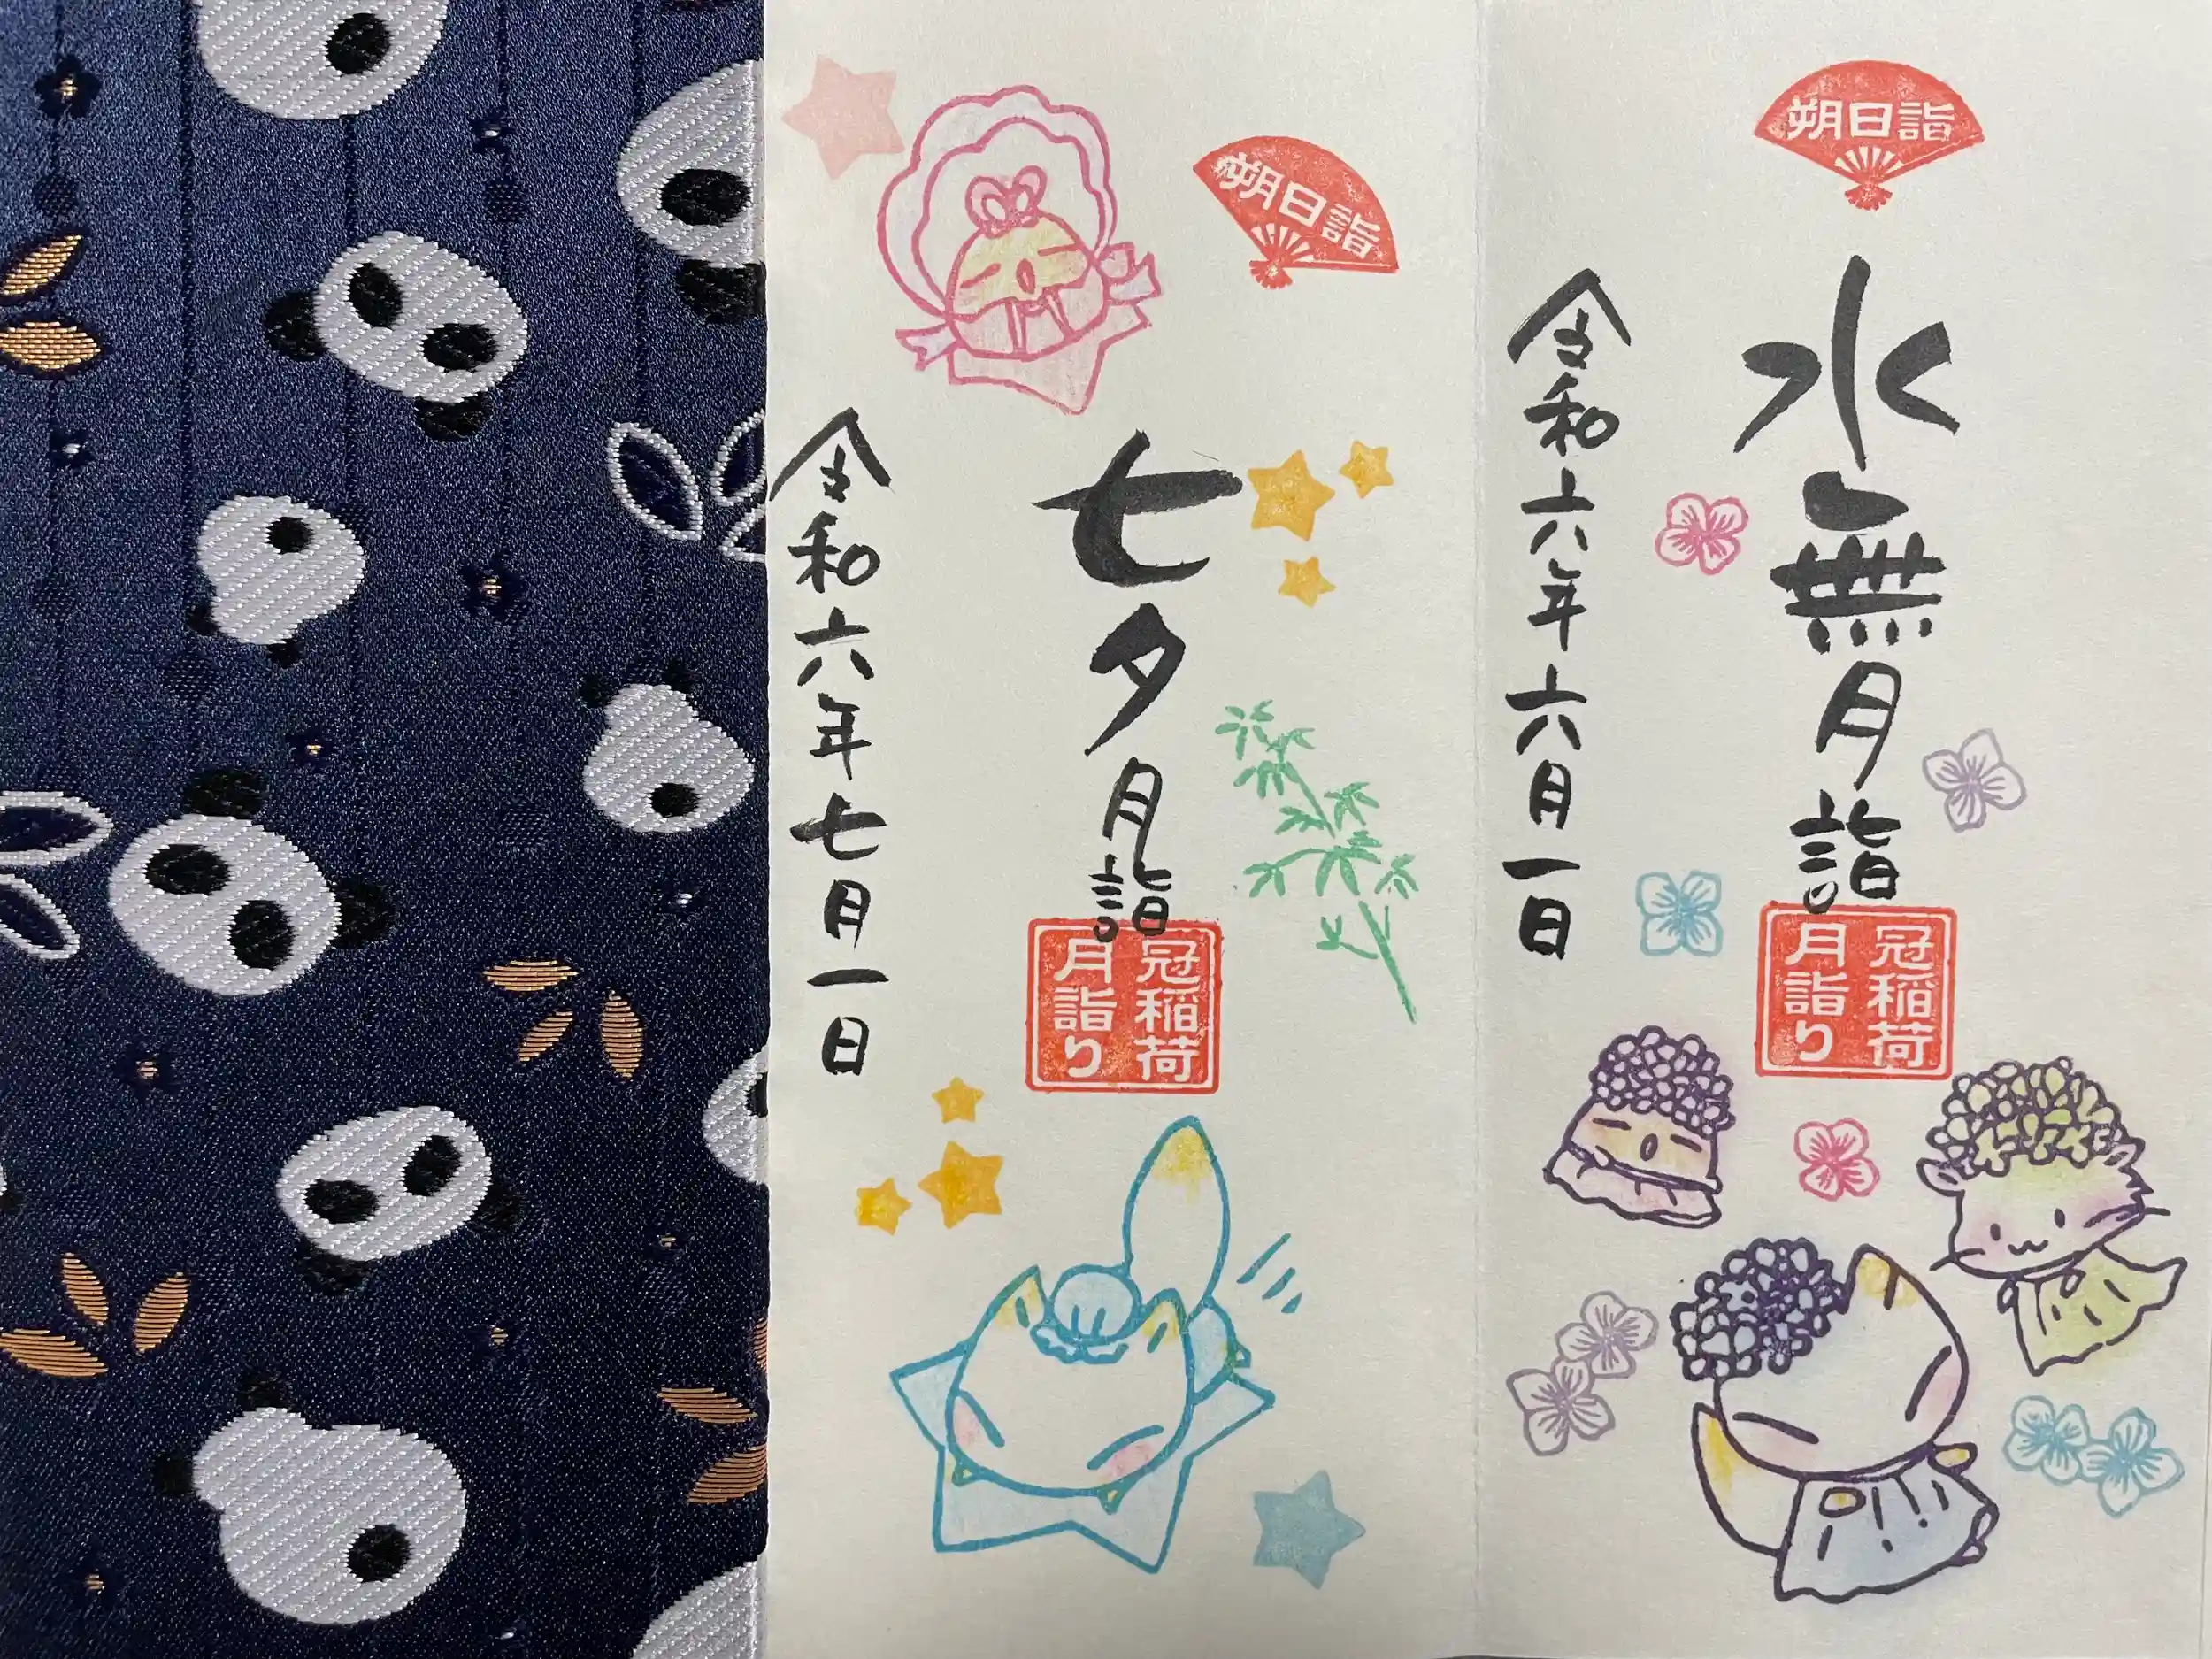 朔日詣
水無月詣
冠稲荷
月詣り
令和六年六月一日
朔日詣
七夕月詣
冠稲荷
月詣り
令和六年七月一日